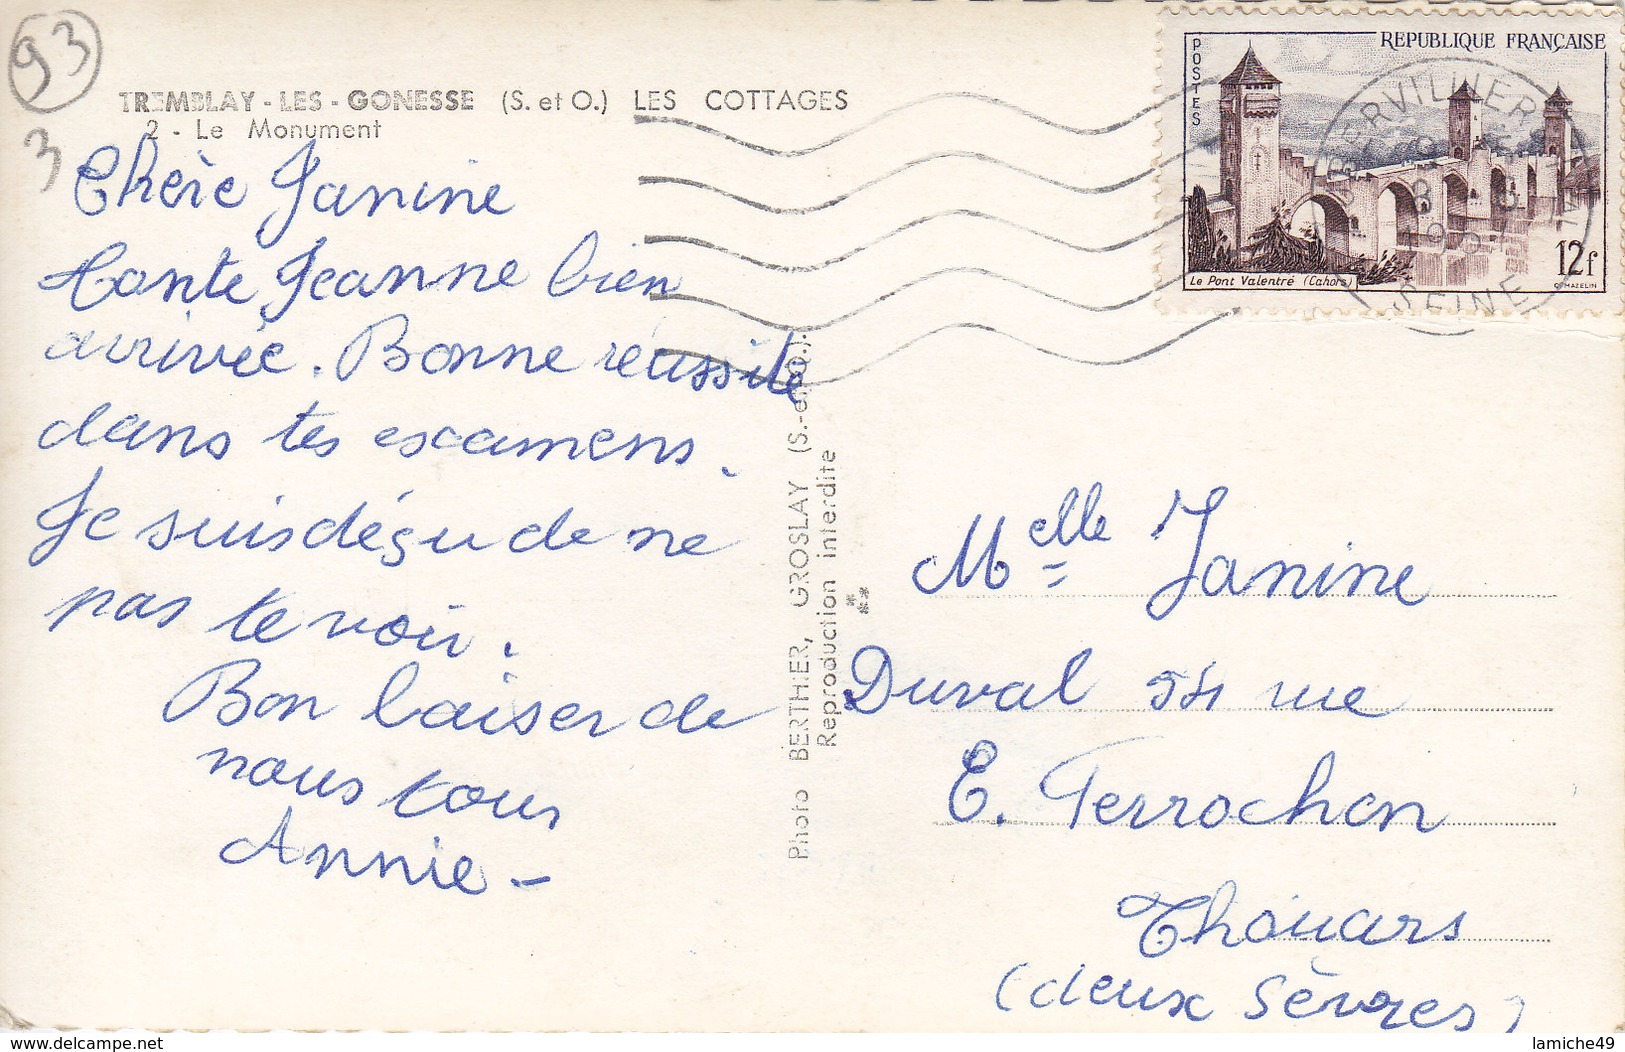 93
3
TREMBLAY-LES-GONESSE (S. et O.) LES COTTAGES
2 - Le Monument
Chère Janine
Tante Jeanne bien
arrivée. Bonne réussite
dans tes examens.
Je suis déçu de ne
pas te voir.
Bon baiser de
nous tous
Annie -
Photo BERTHIER, GROSLAY (S.-et-O.).
Reproduction interdite
POSTES
REPUBLIQUE FRANÇAISE
12f
Le Pont Valentré (Cahors)
C. MAZELIN
SEINE
Melle Janine
Duval 54 rue
E. Perrochon
Thouars
(deux Sèvres)
delcampe.net
lamiche49